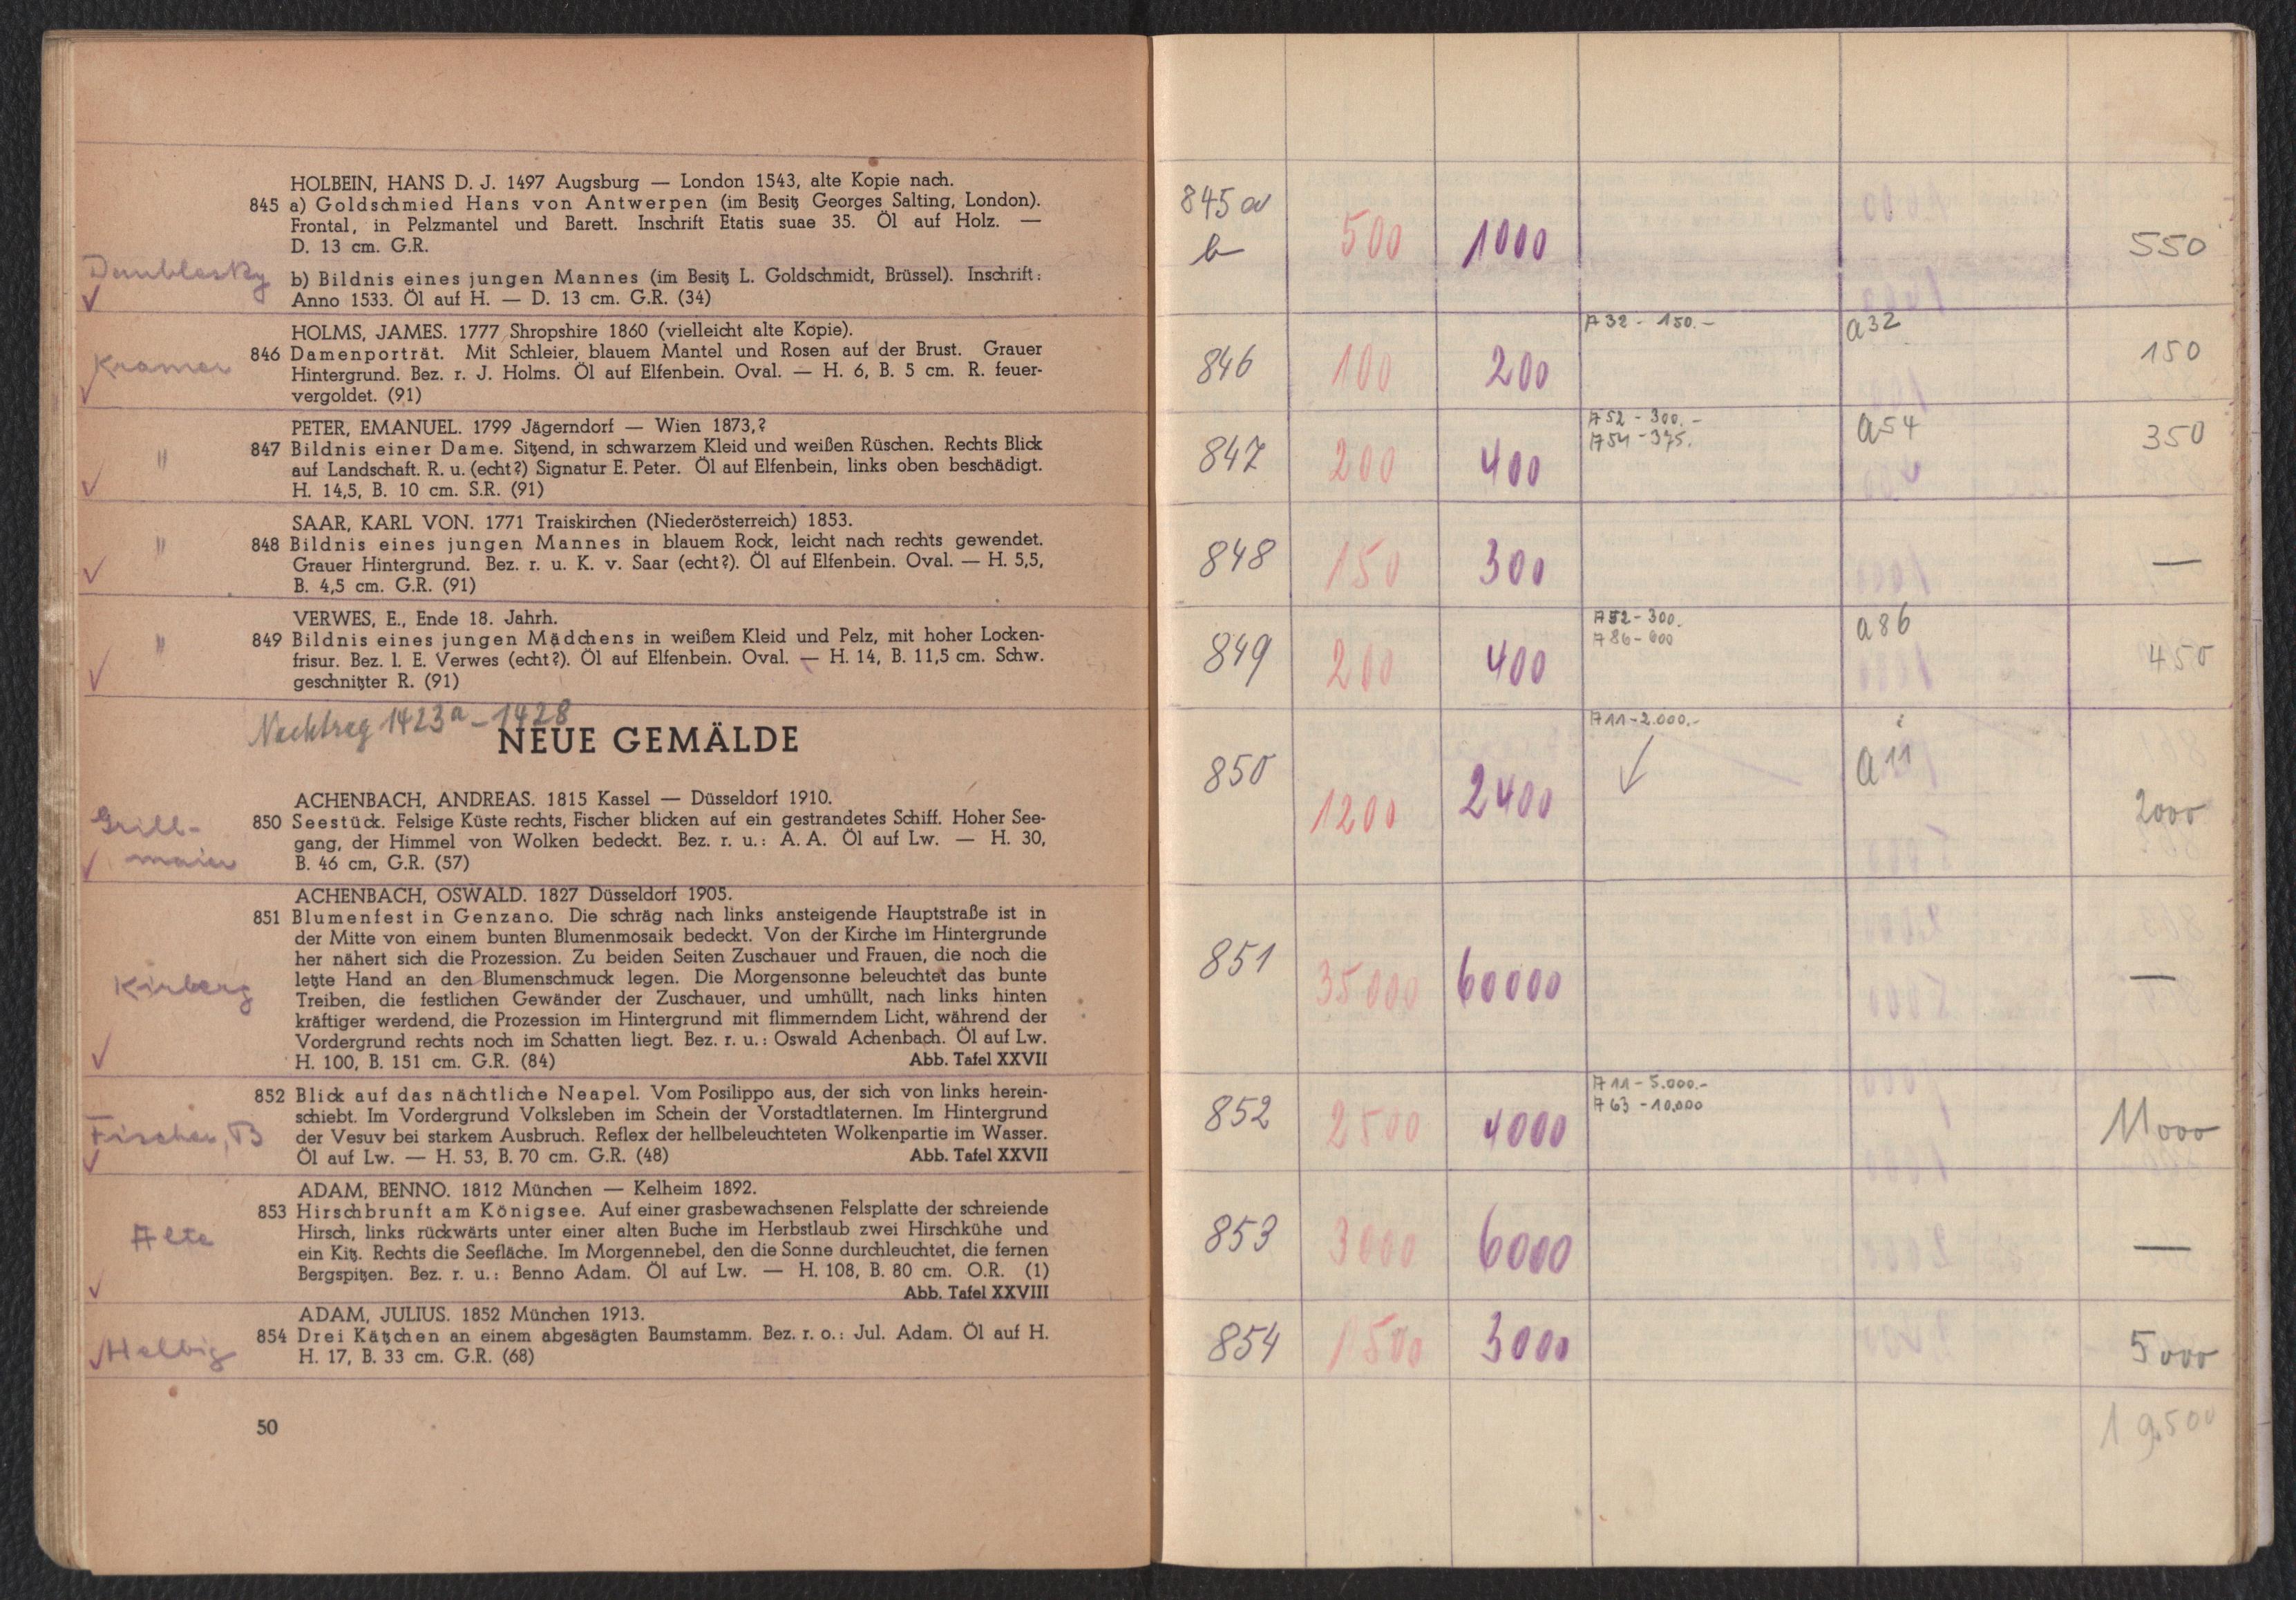 HOLBEIN, HANS D. J. 1497 Augsburg — London 1543, alte Kopie nach.
845 a) Goldschmied Hans von Antwerpen (im Besitz Georges Salting, London).
Frontal, in Pelzmantel und Barett. Inschrift Etatis suae 35. Öl auf Holz. —
D. 13 cm. G.R.
b) Bildnis eines jungen Mannes (im Besitz L. Goldschmidt, Brüssel). Inschrift:
Anno 1533. Öl auf H. — D. 13 cm. G.R. (34)
Kramer
HOLMS, JAMES. 1777 Shropshire 1860 (vielleicht alte Kopie).
846 Damenporträt. Mit Schleier, blauem Mantel und Rosen auf der Brust. Grauer
Hintergrund. Bez. r. J. Holms. Öl auf Elfenbein. Oval. — H. 6, B. 5 cm. R. feuer-
vergoldet. (91)
"
PETER, EMANUEL. 1799 Jägerndorf — Wien 1873,?
847 Bildnis einer Dame. Sitzend, in schwarzem Kleid und weißen Rüschen. Rechts Blick
auf Landschaft. R. u. (echt?) Signatur E. Peter. Öl auf Elfenbein, links oben beschädigt.
H. 14,5, B. 10 cm. S.R. (91)
"
SAAR, KARL VON. 1771 Traiskirchen (Niederösterreich) 1853.
848 Bildnis eines jungen Mannes in blauem Rock, leicht nach rechts gewendet.
Grauer Hintergrund. Bez. r. u. K. v. Saar (echt?). Öl auf Elfenbein. Oval. — H. 5,5,
B. 4,5 cm. G.R. (91)
"
VERWES, E., Ende 18. Jahrh.
849 Bildnis eines jungen Mädchens in weißem Kleid und Pelz, mit hoher Locken-
frisur. Bez. l. E. Verwes (echt?). Öl auf Elfenbein. Oval. — H. 14, B. 11,5 cm. Schw.
geschnitzter R. (91)
Nachtrag 1423a - 1428
NEUE GEMÄLDE
Grill-
maier
ACHENBACH, ANDREAS. 1815 Kassel — Düsseldorf 1910.
850 Seestück. Felsige Küste rechts, Fischer blicken auf ein gestrandetes Schiff. Hoher See-
gang, der Himmel von Wolken bedeckt. Bez. r. u.: A. A. Öl auf Lw. — H. 30,
B. 46 cm, G.R. (57)
Kirberg
ACHENBACH, OSWALD. 1827 Düsseldorf 1905.
851 Blumenfest in Genzano. Die schräg nach links ansteigende Hauptstraße ist in
der Mitte von einem bunten Blumenmosaik bedeckt. Von der Kirche im Hintergrunde
her nähert sich die Prozession. Zu beiden Seiten Zuschauer und Frauen, die noch die
letzte Hand an den Blumenschmuck legen. Die Morgensonne beleuchtet das bunte
Treiben, die festlichen Gewänder der Zuschauer, und umhüllt, nach links hinten
kräftiger werdend, die Prozession im Hintergrund mit flimmerndem Licht, während der
Vordergrund rechts noch im Schatten liegt. Bez. r. u.: Oswald Achenbach. Öl auf Lw.
H. 100, B. 151 cm. G.R. (84) Abb. Tafel XXVII
Fischer, B
852 Blick auf das nächtliche Neapel. Vom Posilippo aus, der sich von links herein-
schiebt. Im Vordergrund Volksleben im Schein der Vorstadtlaternen. Im Hintergrund
der Vesuv bei starkem Ausbruch. Reflex der hellbeleuchteten Wolkenpartie im Wasser.
Öl auf Lw. — H. 53, B. 70 cm. G.R. (48) Abb. Tafel XXVII
Alte
ADAM, BENNO. 1812 München — Kelheim 1892.
853 Hirschbrunft am Königsee. Auf einer grasbewachsenen Felsplatte der schreiende
Hirsch, links rückwärts unter einer alten Buche im Herbstlaub zwei Hirschkühe und
ein Kitz. Rechts die Seefläche. Im Morgennebel, den die Sonne durchleuchtet, die fernen
Bergspitzen. Bez. r. u.: Benno Adam. Öl auf Lw. — H. 108, B. 80 cm. O.R. (1)
Abb. Tafel XXVIII
Helbig
ADAM, JULIUS. 1852 München 1913.
854 Drei Kätzchen an einem abgesägten Baumstamm. Bez. r. o.: Jul. Adam. Öl auf H.
H. 17, B. 33 cm. G.R. (68)
50
845 a
b 500 1000 550
846 100 200 A 32 - 150.- a 32 150
847 200 400 A 52 - 300.- a 54 350
A 54 - 375.
848 150 300 —
849 200 400 A 52 - 300. a 86 450
A 86 - 600
850 1200 2400 A 11 - 2.000.- a 11 2000
851 35000 60000 —
852 2500 4000 A 11 - 5.000.- 11000
A 63 - 10.000
853 3000 6000 —
854 1500 3000 5000
19500